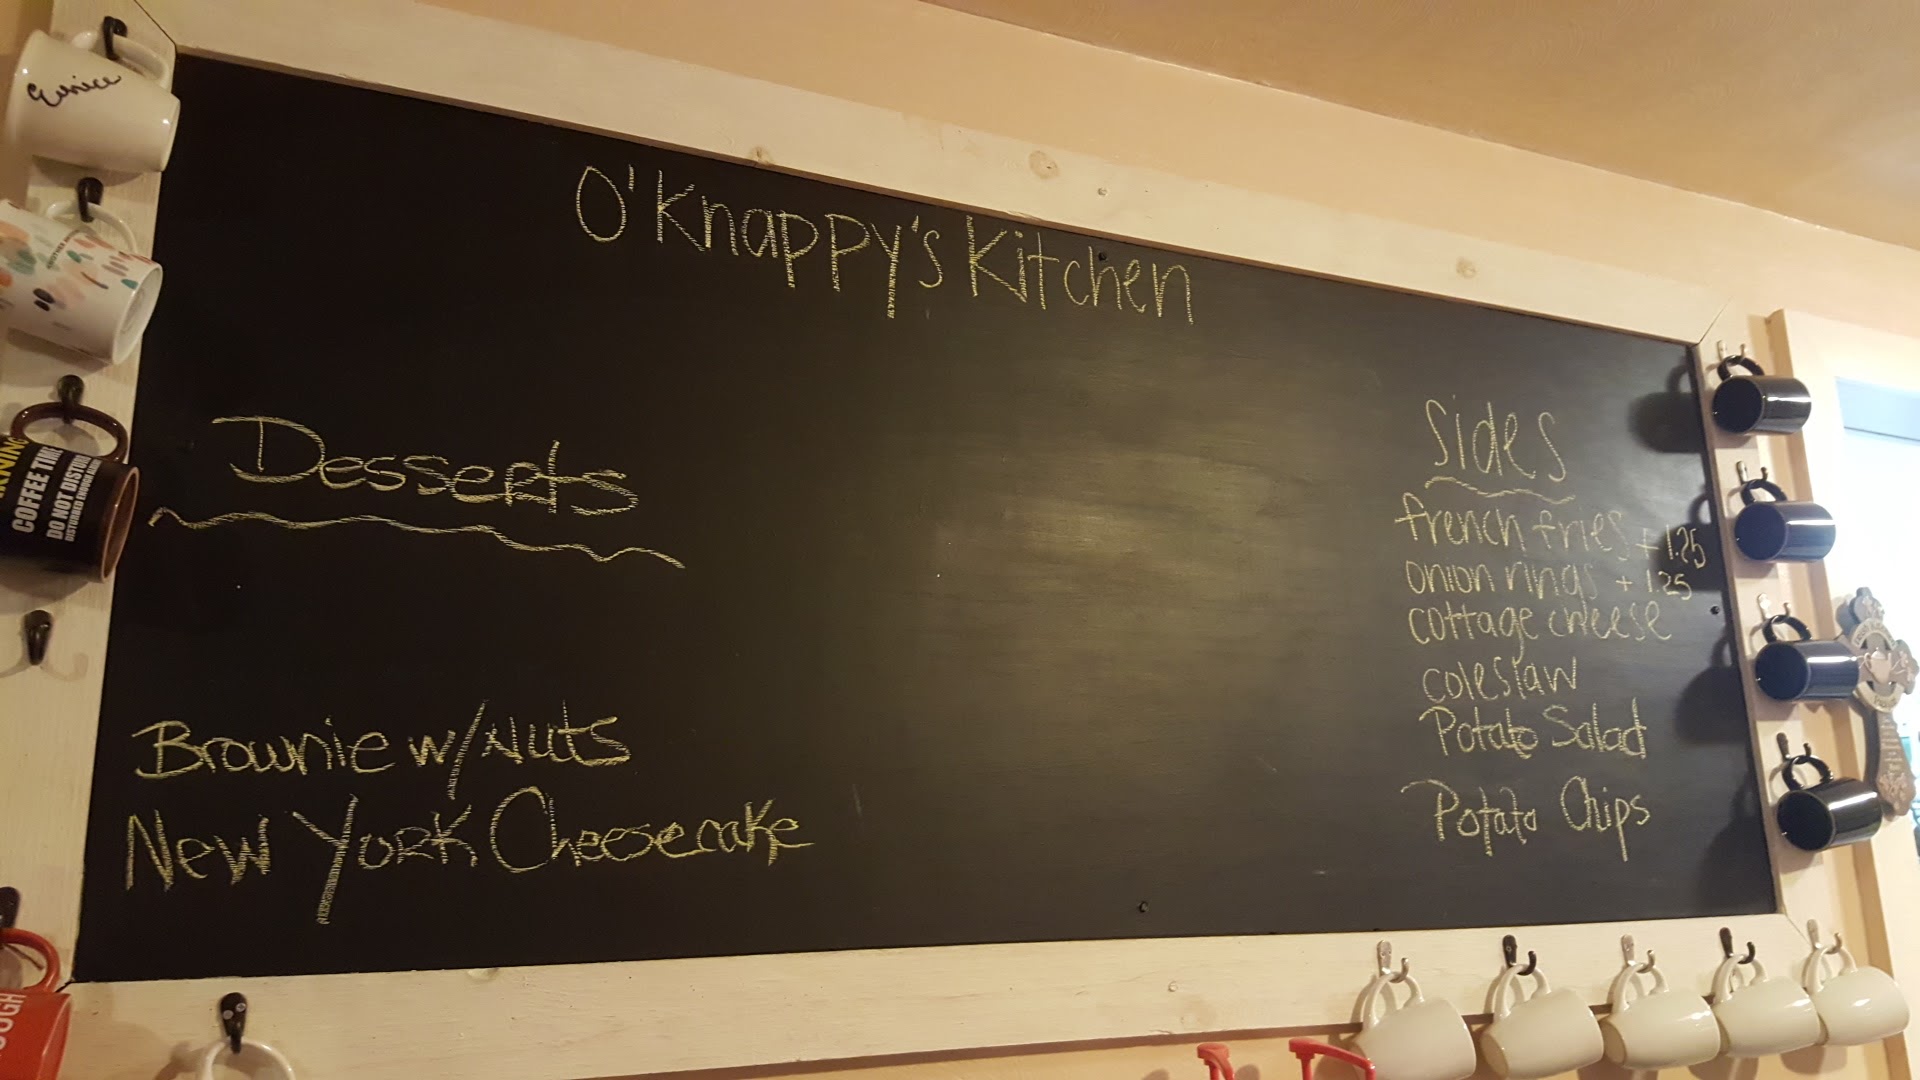 Eunice
COFFEE TIME
DO NOT DISTURB
O'Knappy's Kitchen
Desserts
Brownie w/Nuts
New York Cheesecake
Sides
french fries +1.25
onion rings +1.25
cottage cheese
coleslaw
Potato Salad
Potato Chips